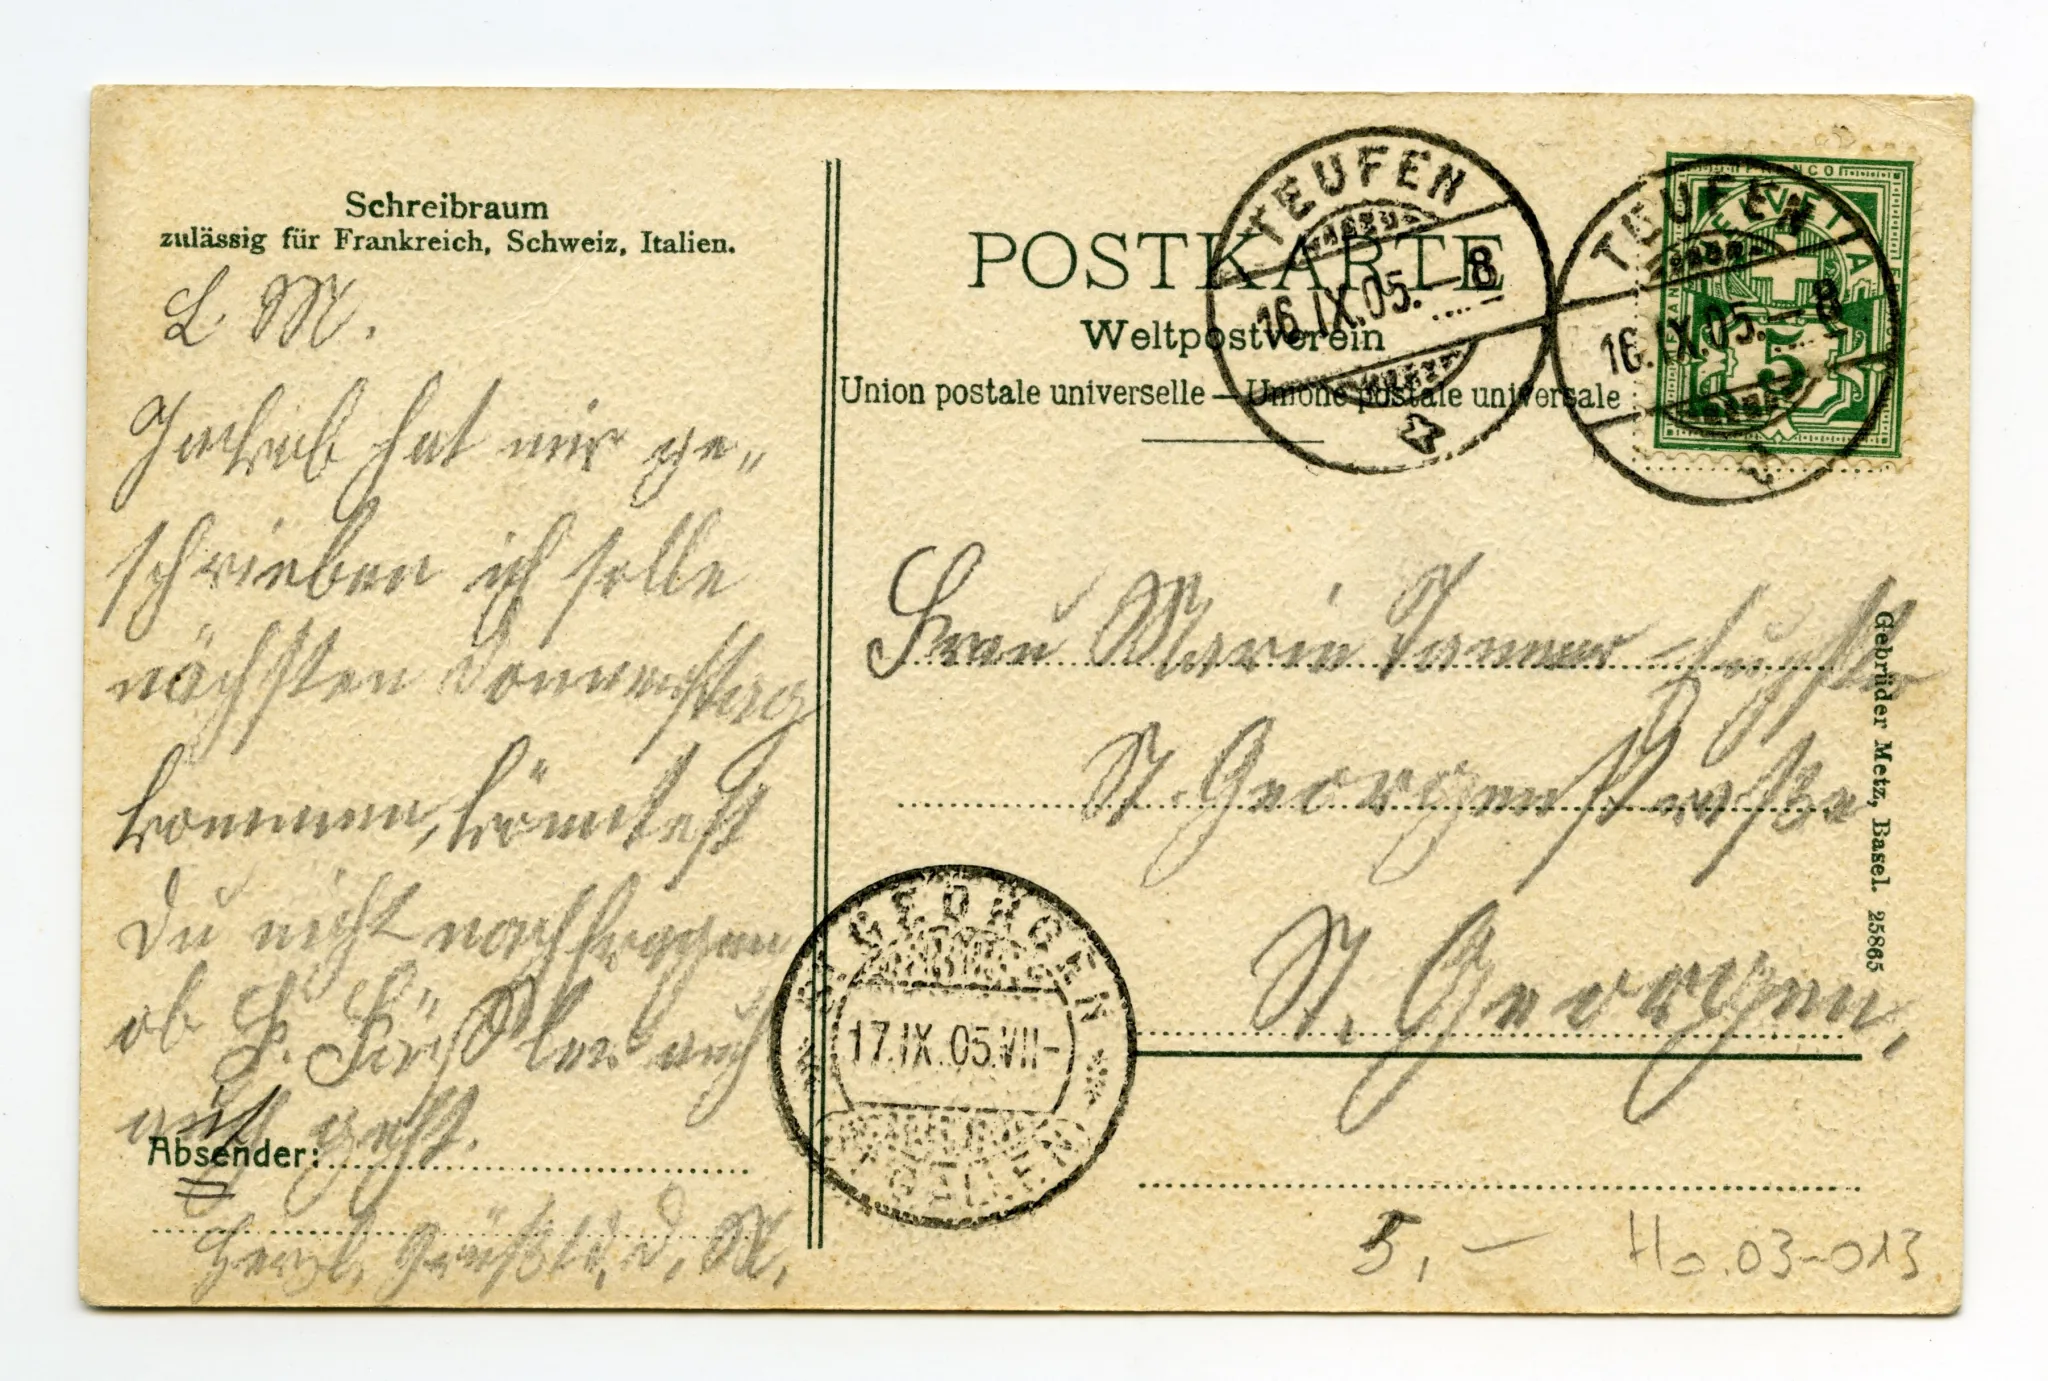 Schreibraum
zulässig für Frankreich, Schweiz, Italien.
L. M.
Jakob hat mir ge-
schrieben ich solle
nächsten Donnerstag
kommen, könntest
Du nicht nachfragen
ob F. Fässler auch
geht.
Absender:
Herzl. Grüsst d. M.
POSTKARTE
Weltpostverein
Union postale universelle — Unione postale universale
TEUFEN
16.IX.05.–8
TEUFEN
16.IX.05.–8
FRANCO
HELVETIA
5
Frau Marie Tanner
St. Georgenstrasse
St. Georgen,
ST. GEORGEN
17.IX.05.VII–
Gebrüder Metz, Basel. 25865
5,–
Ho.03-013